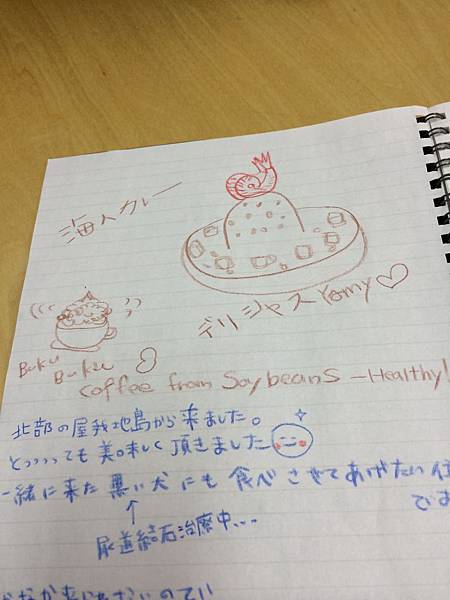 海人カレー
デリシャス Yomy
Buku
Buku
coffee from Soybeans — Healthy!
北部の屋我地島から来ました。
とっっっっても美味しく頂きました
一緒に来た黒い犬にも食べさせてあげたい位
です
↑
尿道結石治療中...